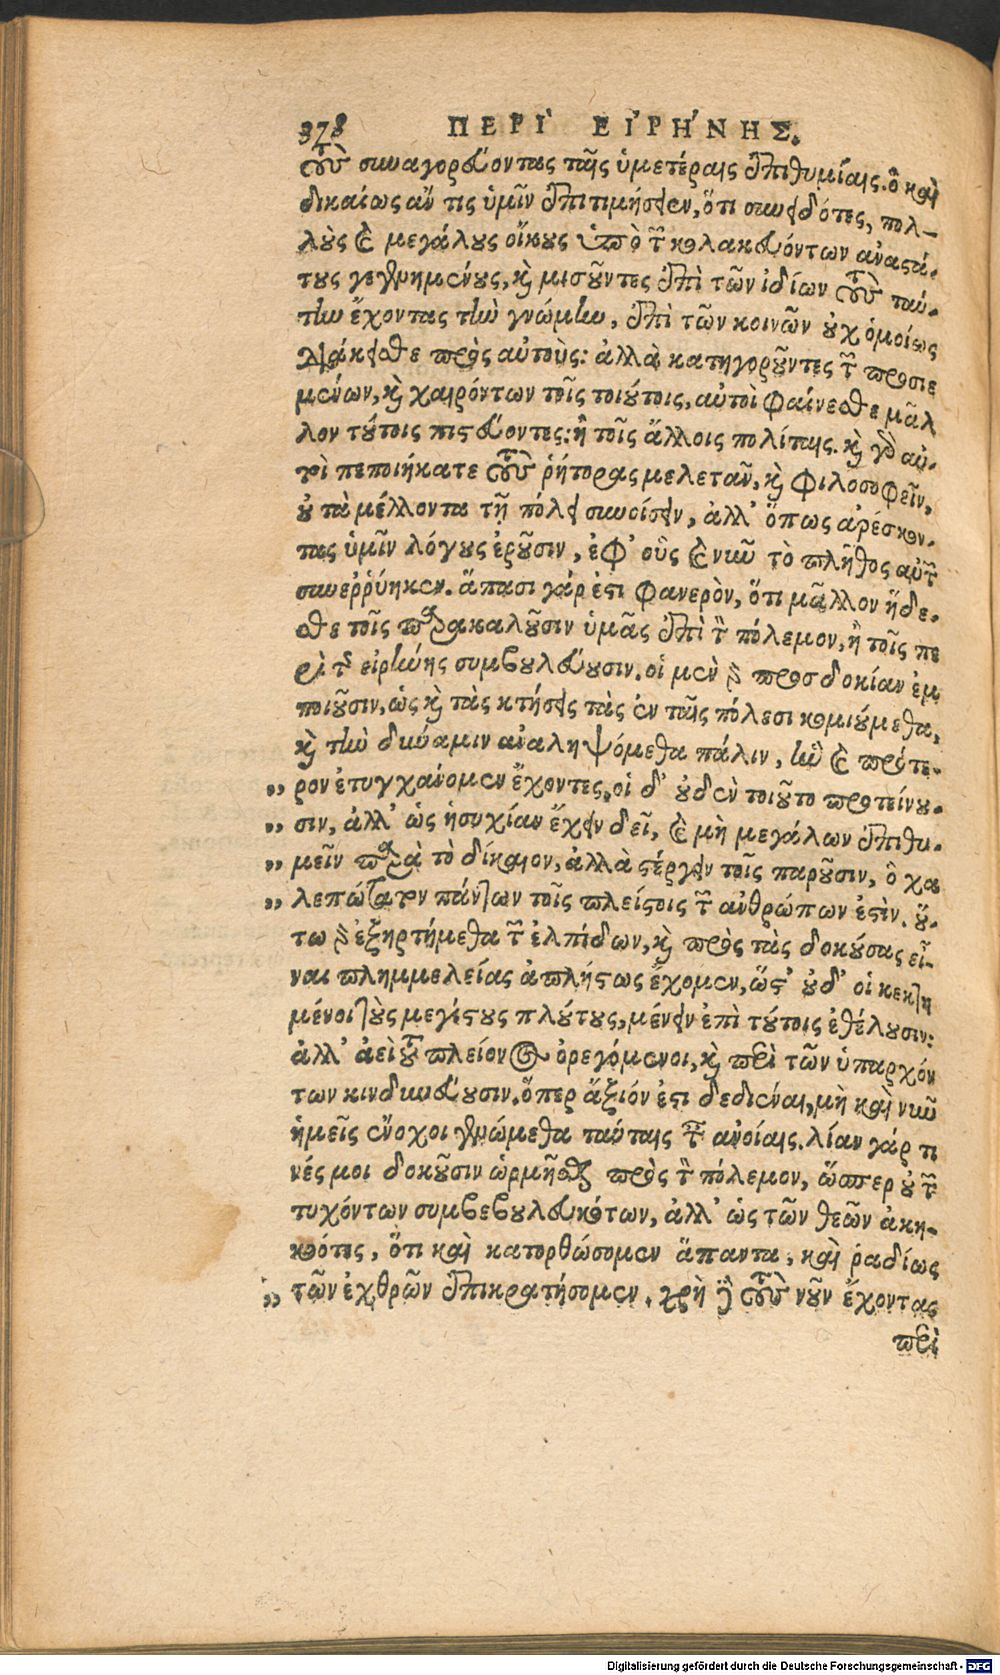 378 ΠΕΡῚ ΕἸΡΉΝΗΣ.
τοὺς συναγορεύοντας ταῖς ὑμετέραις ἐπιθυμίαις. ὃ καὶ
δικαίως ἄν τις ὑμῖν ἐπιτιμήσειεν, ὅτι συνειδότες, πολ-
λοὺς καὶ μεγάλους οἴκους ὑπὸ τῶν κολακευόντων ἀναστά-
τους γεγενημένους, καὶ μισοῦντες ἐπὶ τῶν ἰδίων τοὺς ταύ-
την ἔχοντας τὴν γνώμην, ἐπὶ τῶν κοινῶν οὐχ ὁμοίως
διάκεισθε πρὸς αὐτούς: ἀλλὰ κατηγοροῦντες τῶν προσιε
μένων, καὶ χαιρόντων τοῖς τοιούτοις, αὐτοὶ φαίνεσθε μᾶλ
λον τούτοις πιστεύοντες: ἢ τοῖς ἄλλοις πολίταις. καὶ γὰρ αὐ-
τοὶ πεποιήκατε τοὺς ῥήτορας μελετᾶν, καὶ φιλοσοφεῖν,
οὐ τὰ μέλλοντα τῇ πόλει συνοίσειν, ἀλλ' ὅπως ἀρέσκον-
τας ὑμῖν λόγους ἐροῦσιν, ἐφ' οὓς καὶ νῦν τὸ πλῆθος αὐτῶν
συνερρύηκεν. ἅπασι γάρ ἐστι φανερὸν, ὅτι μᾶλλον ἥδε-
σθε τοῖς παρακαλοῦσιν ὑμᾶς ἐπὶ τὸν πόλεμον, ἢ τοῖς πε
ρὶ τῆς εἰρήνης συμβουλεύουσιν. οἱ μὲν γὰρ προσδοκίαν ἐμ
ποιοῦσιν, ὡς καὶ τὰς κτήσεις τὰς ἐν ταῖς πόλεσι κομιούμεθα,
καὶ τὴν δύναμιν ἀναληψόμεθα πάλιν, ἣν καὶ πρότε-
„ ρον ἐτυγχάνομεν ἔχοντες. οἱ δ' οὐδὲν τοιοῦτο προτείνου-
„ σιν, ἀλλ' ὡς ἡσυχίαν ἔχειν δεῖ, καὶ μὴ μεγάλων ἐπιθυ-
„ μεῖν παρὰ τὸ δίκαιον, ἀλλὰ στέργειν τοῖς παροῦσιν, ὃ χα
„ λεπώτατον πάντων τοῖς πλείστοις τῶν ἀνθρώπων ἐστίν. οὕ-
τω γὰρ ἐξηρτήμεθα τῶν ἐλπίδων, καὶ πρὸς τὰς δοκούσας εἶ-
ναι πλημμελείας ἀπλήστως ἔχομεν, ὥστ' οὐδ' οἱ κεκτη
μένοι τοὺς μεγίστους πλούτους, μένειν ἐπὶ τούτοις ἐθέλουσιν:
ἀλλ' ἀεὶ τοῦ πλείονος ὀρεγόμενοι, καὶ περὶ τῶν ὑπαρχόν
των κινδυνεύουσιν. ὅπερ ἄξιόν ἐστι δεδιέναι, μὴ καὶ νῦν
ἡμεῖς ἔνοχοι γενώμεθα ταύταις ταῖς ἀνοίαις. λίαν γάρ τι
νές μοι δοκοῦσιν ὡρμῆσθαι πρὸς τὸν πόλεμον, ὥσπερ οὐ τῶν
τυχόντων συμβεβουλευκότων, ἀλλ' ὡς τῶν θεῶν ἀκη-
κοότες, ὅτι καὶ κατορθώσομεν ἅπαντα, καὶ ῥαδίως
„ τῶν ἐχθρῶν ἐπικρατήσομεν. χρὴ δὲ τοὺς νοῦν ἔχοντας
περὶ
Digitalisierung gefördert durch die Deutsche Forschungsgemeinschaft - DFG